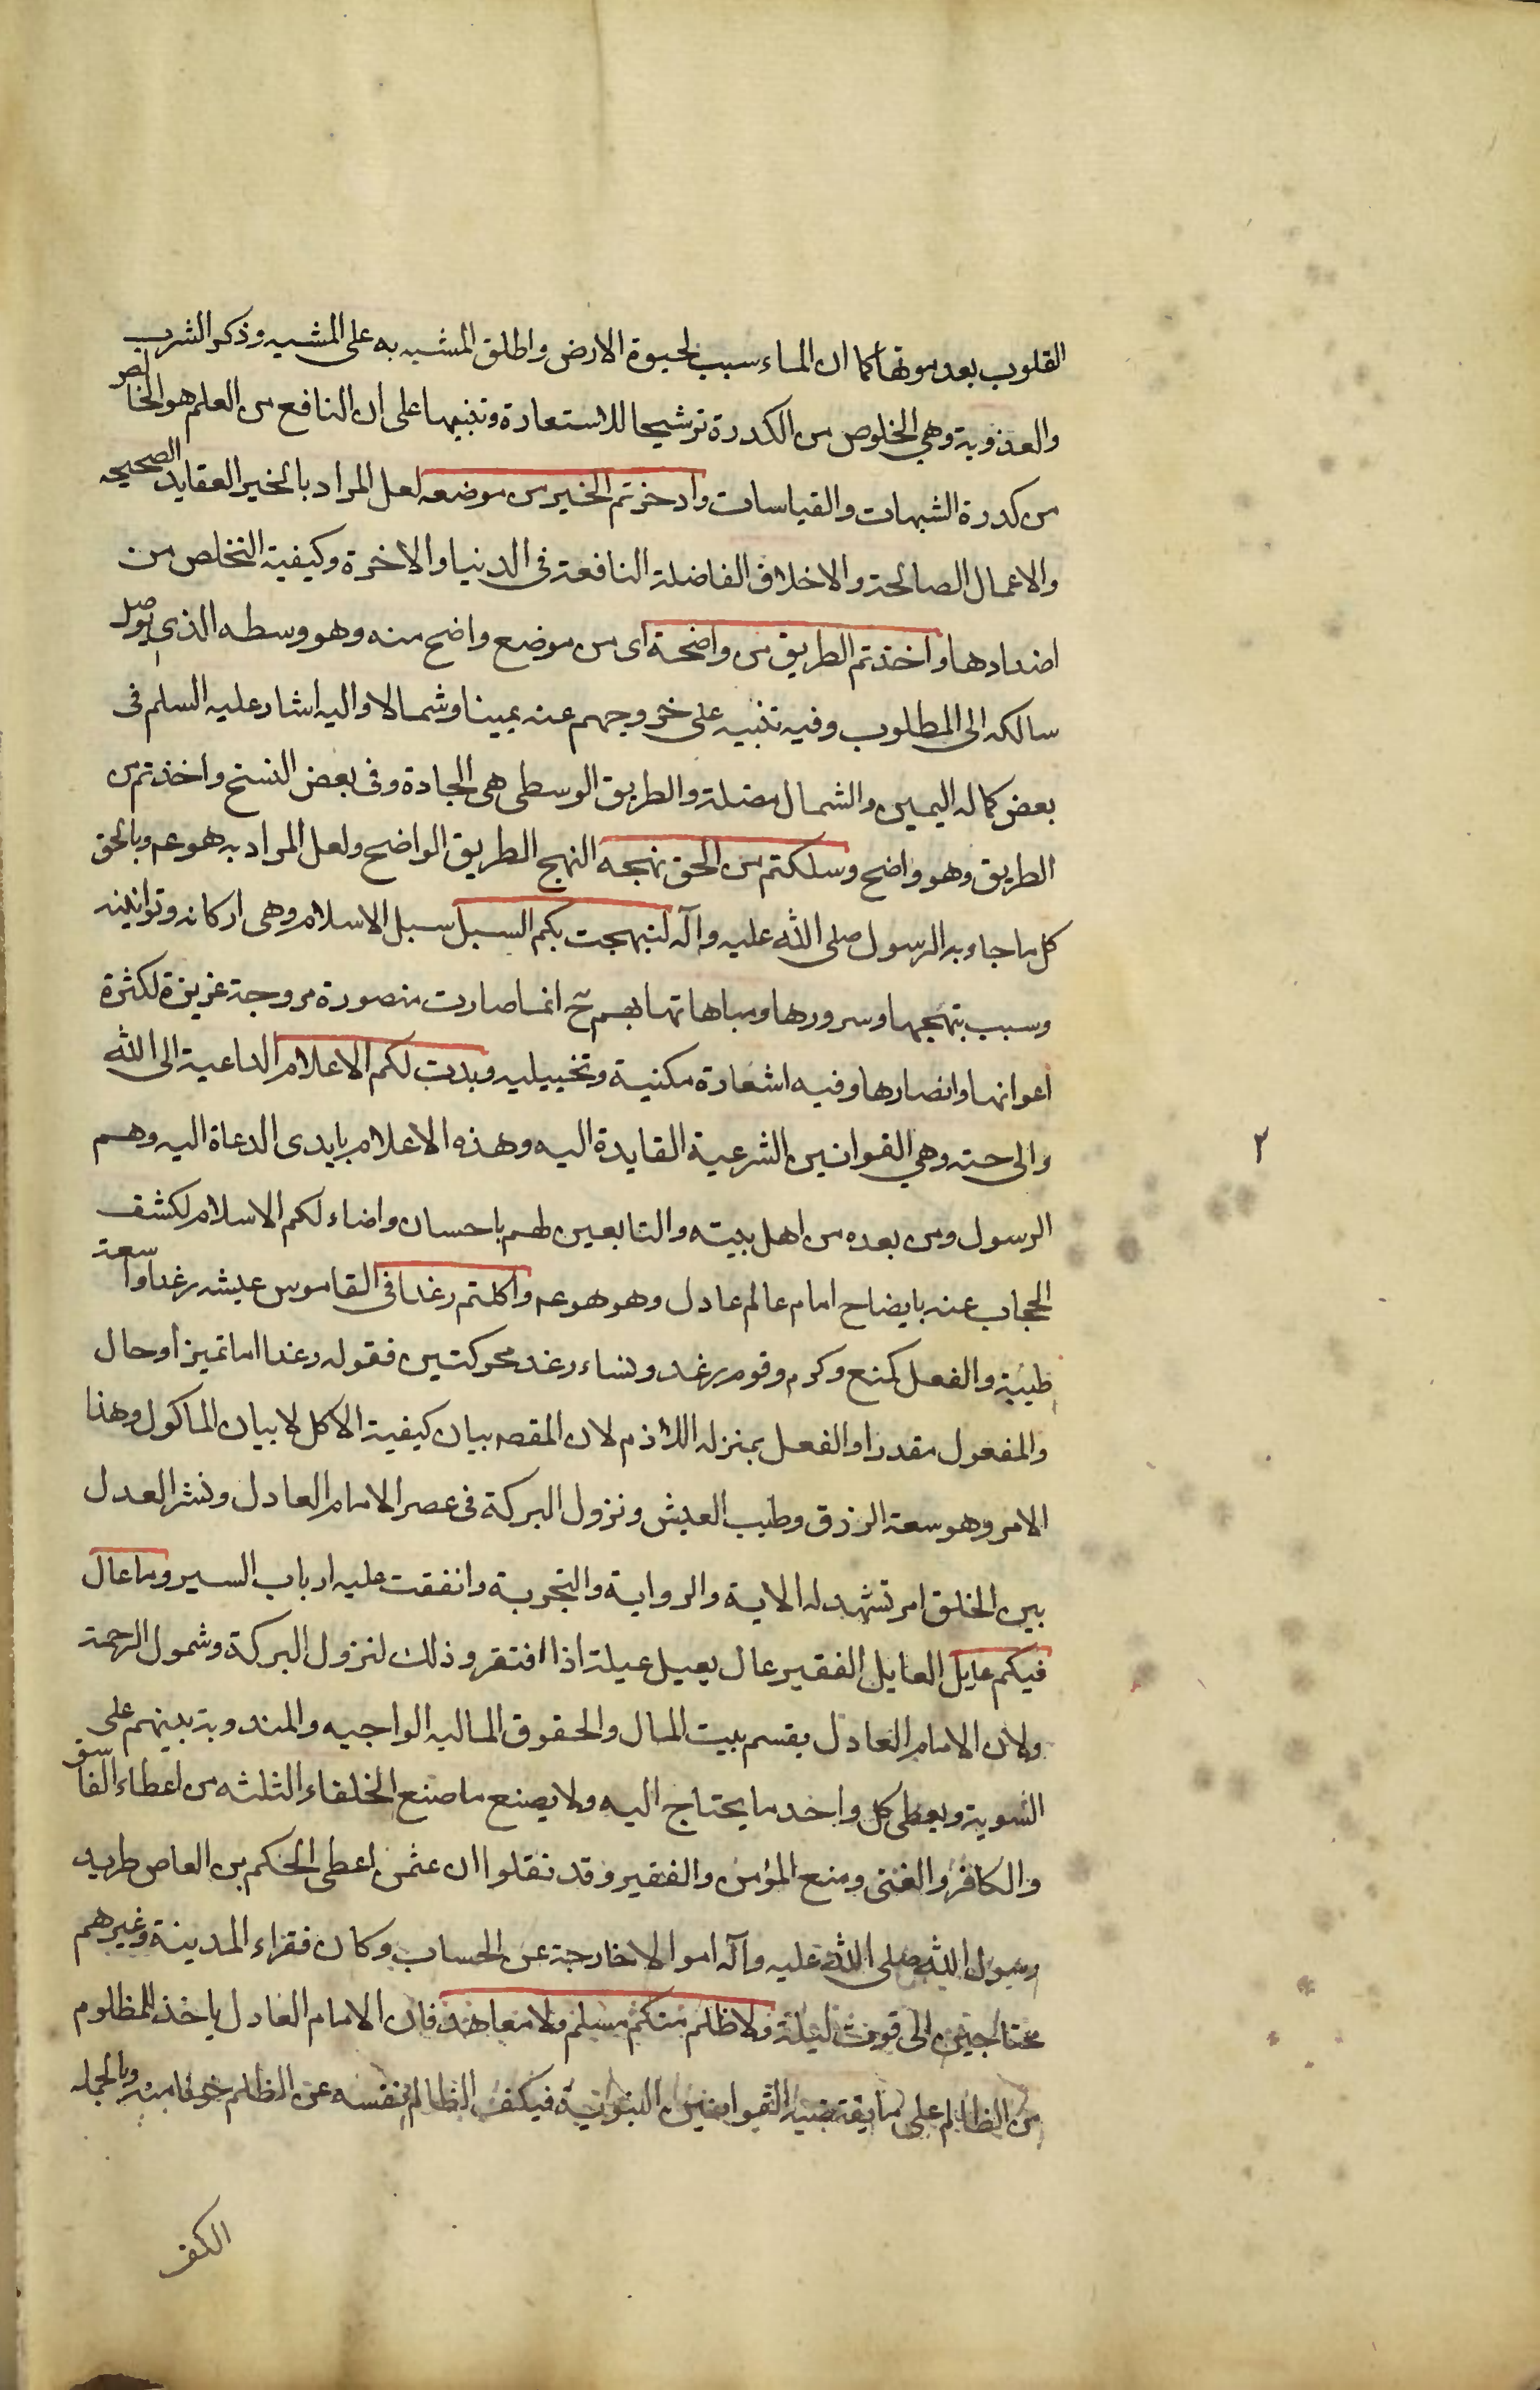 القلوب بعد موتها كما ان الماء سبب لحيوة الارض واطلق المشبه به على المشبه وذكر الشرب
والعذوبة وهي الخلوص من الكدرة ترشيحا للاستعارة وتنبيها على ان النافع من العلم هو الخالص
من كدرة الشبهات والقياسات وادخرتم الخير من موضعه لعل المراد بالخير العقايد الصحيحه
والاعمال الصالحة والاخلاق الفاضلة النافعة في الدنيا والاخرة وكيفية التخلص من
اضدادها واخذتم الطريق من واضحة اى من موضع واضح منه وهو وسطه الذى يوصل
سالكه الى المطلوب وفيه تنبيه على خروجهم عنه يمينا وشمالا واليه اشار عليه السلم فى
بعض كماله اليمين والشمال مضلة والطريق الوسطى هى الجادة وفى بعض النسخ واخذتم من
الطريق وهو واضح وسلكتم من الحق نهجه النهج الطريق الواضح ولعل المراد به هو عم وبالحق
كل ما جاء به الرسول صلى الله عليه وآله لنبهجت بكم السبل سبل الاسلام وهى اركانه وقوانينه
وسبب بتهجها وسرورها ومباهاتها بهم ح انما صارت منصورة مروجة عزيزة لكثرة
اعوانها وانصارها وفيه اشعارة مكنية وتخييليه وبدت لكم الاعلام الداعية الى الله
والى حته وهي القوانين الشرعية القايدة اليه وهذه الاعلام بايدى الدعاة اليه وهم
الرسول ومن بعده من اهل بيته والتابعين لهم باحسان واضاء لكم الاسلام لكشف
الحجاب عنه بايضاح امام عالم عادل وهو هو عم واكلتم رغدا فى القاموس عيشه رغد واسعة
طيبة والفعل كمنع وكرم وقوم رغد ونساء رغد محركتين فقوله رغدا اما تميز أو حال
والمفعول مقدر او الفعل بمنزله اللازم لان المقصد بيان كيفية الاكل لا بيان الماكول وهذا
الامر وهو سعة الرزق وطيب العيش ونزول البركة فى عصر الامام العادل ونشر العدل
بين الخلق امر تشهد له الاية والرواية والتجربة واتفقت عليه ارباب السير وما عال
فيكم عايل العايل الفقير عال يعيل عيلة اذا افتقر وذلك لنزول البركة وشمول الرحمة
ولان الامام العادل يقسم بيت المال والحقوق الماليه الواجبه والمندوبة بينهم على
السوية ويعطى كل واحد ما يحتاج اليه ولا يصنع ما صنع الخلفاء الثلثه من اعطاء الفاسق
والكافر والغنى ومنع المؤمن والفقير وقد نقلوا ان عثمن اعطى الحكم بن العاص طريد
رسول الله صلى الله عليه وآله اموالا خارجة عن الحساب وكان فقراء المدينة وغيرهم
محتاجين الى قوت ليلة ولا ظلم منكم مسلم ولا معاهد فان الامام العادل ياخذ للمظلوم
من الظالم على ما يقتضيه القوانين النبوية فيكف الظالم نفسه عن الظلم خوفا منه وبالجمله
الكفر
٢